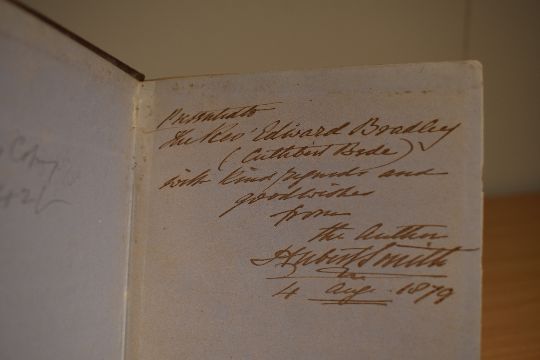 Copy
Presented to
The Rev Edward Bradley
(Cuthbert Bede)
with kind regards and
good wishes
from
the Author
Hubert Smith
4 Aug. 1879